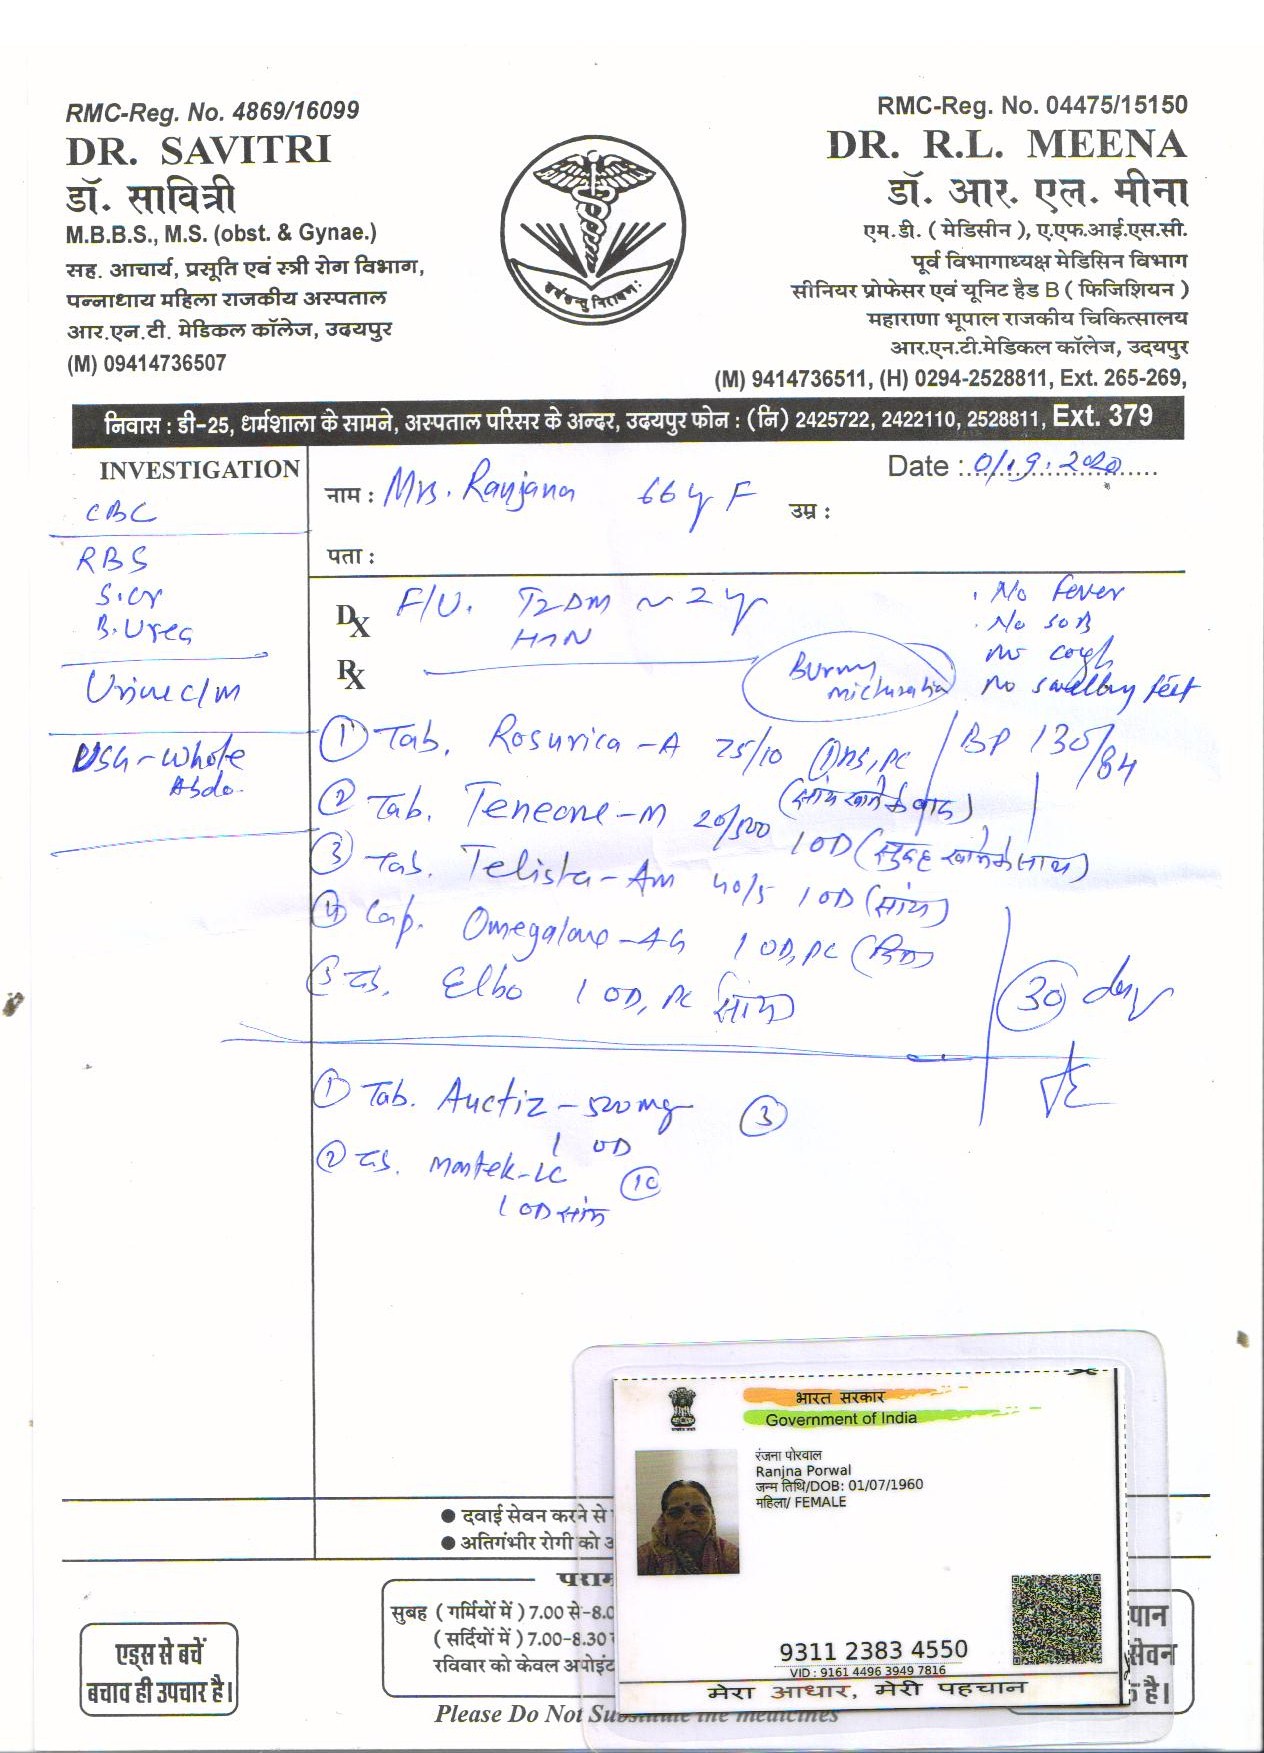 RMC-Reg. No. 4869/16099
DR. SAVITRI
डॉ. सावित्री
M.B.B.S., M.S. (obst. & Gynae.)
सह. आचार्य, प्रसूति एवं स्त्री रोग विभाग,
पन्नाधाय महिला राजकीय अस्पताल
आर.एन.टी. मेडिकल कॉलेज, उदयपुर
(M) 09414736507
RMC-Reg. No. 04475/15150
DR. R.L. MEENA
डॉ. आर. एल. मीना
एम.डी. ( मेडिसीन ), ए.एफ.आई.एस.सी.
पूर्व विभागाध्यक्ष मेडिसिन विभाग
सीनियर प्रोफेसर एवं यूनिट हैड B ( फिजिशियन )
महाराणा भूपाल राजकीय चिकित्सालय
आर.एन.टी.मेडिकल कॉलेज, उदयपुर
(M) 9414736511, (H) 0294-2528811, Ext. 265-269,
निवास : डी-25, धर्मशाला के सामने, अस्पताल परिसर के अन्दर, उदयपुर फोन : (नि) 2425722, 2422110, 2528811, Ext. 379
INVESTIGATION
CBC
RBS
S.cr
B.Urea
Urine c/m
USG-Whole
Abdo.
Date : 0/.9.2020
नाम : Mrs. Ranjana 66 y F उम्र :
पता :
Dx F/U. T2DM ~ 2 y
HTN
. No fever
. No SOB
no cough
no swelling feet
Rx
Burny
micturatia
① Tab. Rosurica-A 75/10 ① HS, PC
(सांय खाने के बाद)
BP 130/84
② Tab. Teneone-M 20/500 1 OD (सुबह खाने के साथ)
③ Tab. Telista-Am 40/5 1 OD (सांय)
④ Cap. Omegalone-4G 1 OD, PC
⑤ Elbo 1 OD, PC सांय
30 day
① Tab. Auctiz-500mg ③
1 OD
② Montek-LC 10
1 OD सांय
भारत सरकार
Government of India
रंजना पोरवाल
Ranjna Porwal
जन्म तिथि/DOB: 01/07/1960
महिला/ FEMALE
9311 2383 4550
VID : 9161 4496 3949 7816
मेरा आधार, मेरी पहचान
● दवाई सेवन करने से
● अतिगंभीर रोगी को
एड्स से बचें
बचाव ही उपचार है।
पराम
सुबह ( गर्मियों में ) 7.00 से-8.0
( सर्दियों में ) 7.00-8.30
रविवार को केवल अपोइंट
पान
सेवन
है।
Please Do Not Substitute the medicines